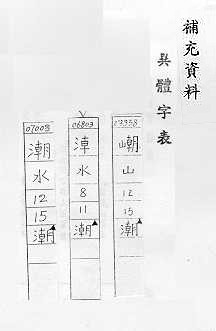 補充資料
異體字表
23358
嘲
山
12
15
潮
06803
淖
水
8
11
潮
07008
潮
水
12
15
潮